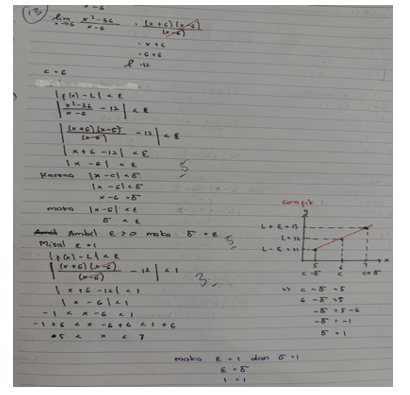 13)
lim x→6 x²-36 / x-6 = (x+6)(x-6) / (x-6)
= x+6
= 6+6
= 12
c = 6
|f(x) - L| < ε
|x²-36 / x-6 - 12| < ε
|(x+6)(x-6) / (x-6) - 12| < ε
|x+6-12| < ε
|x-6| < ε
5,
Karena |x-c| < δ
|x-6| < δ
x-6 = δ
maka |x-6| < ε
δ < ε
Ambil ε > 0 maka δ = ε
5,
Misal ε = 1
|f(x) - L| < ε
|(x+6)(x-6) / (x-6) - 12| < 1
3,
|x+6-12| < 1
|x-6| < 1
-1 < x-6 < 1
-1+6 < x-6+6 < 1+6
5 < x < 7
Grafik :
L+ε = 13
L = 12
L-ε = 11
5 6 7 x
c-δ c c+δ
=> c - δ = 5
6 - δ = 5
-δ = 5-6
-δ = -1
δ = 1
maka ε = 1 dan δ = 1
ε = δ
1 = 1